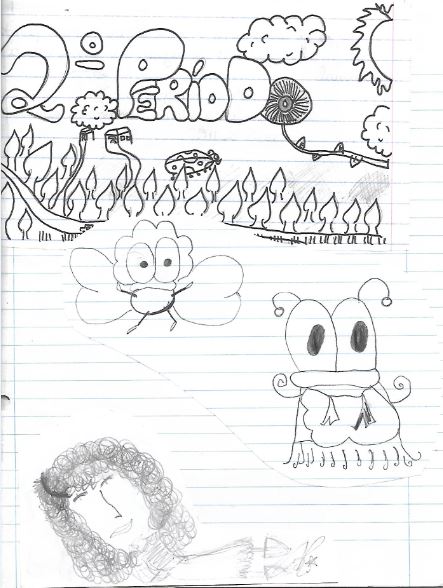 2º PERÍODO